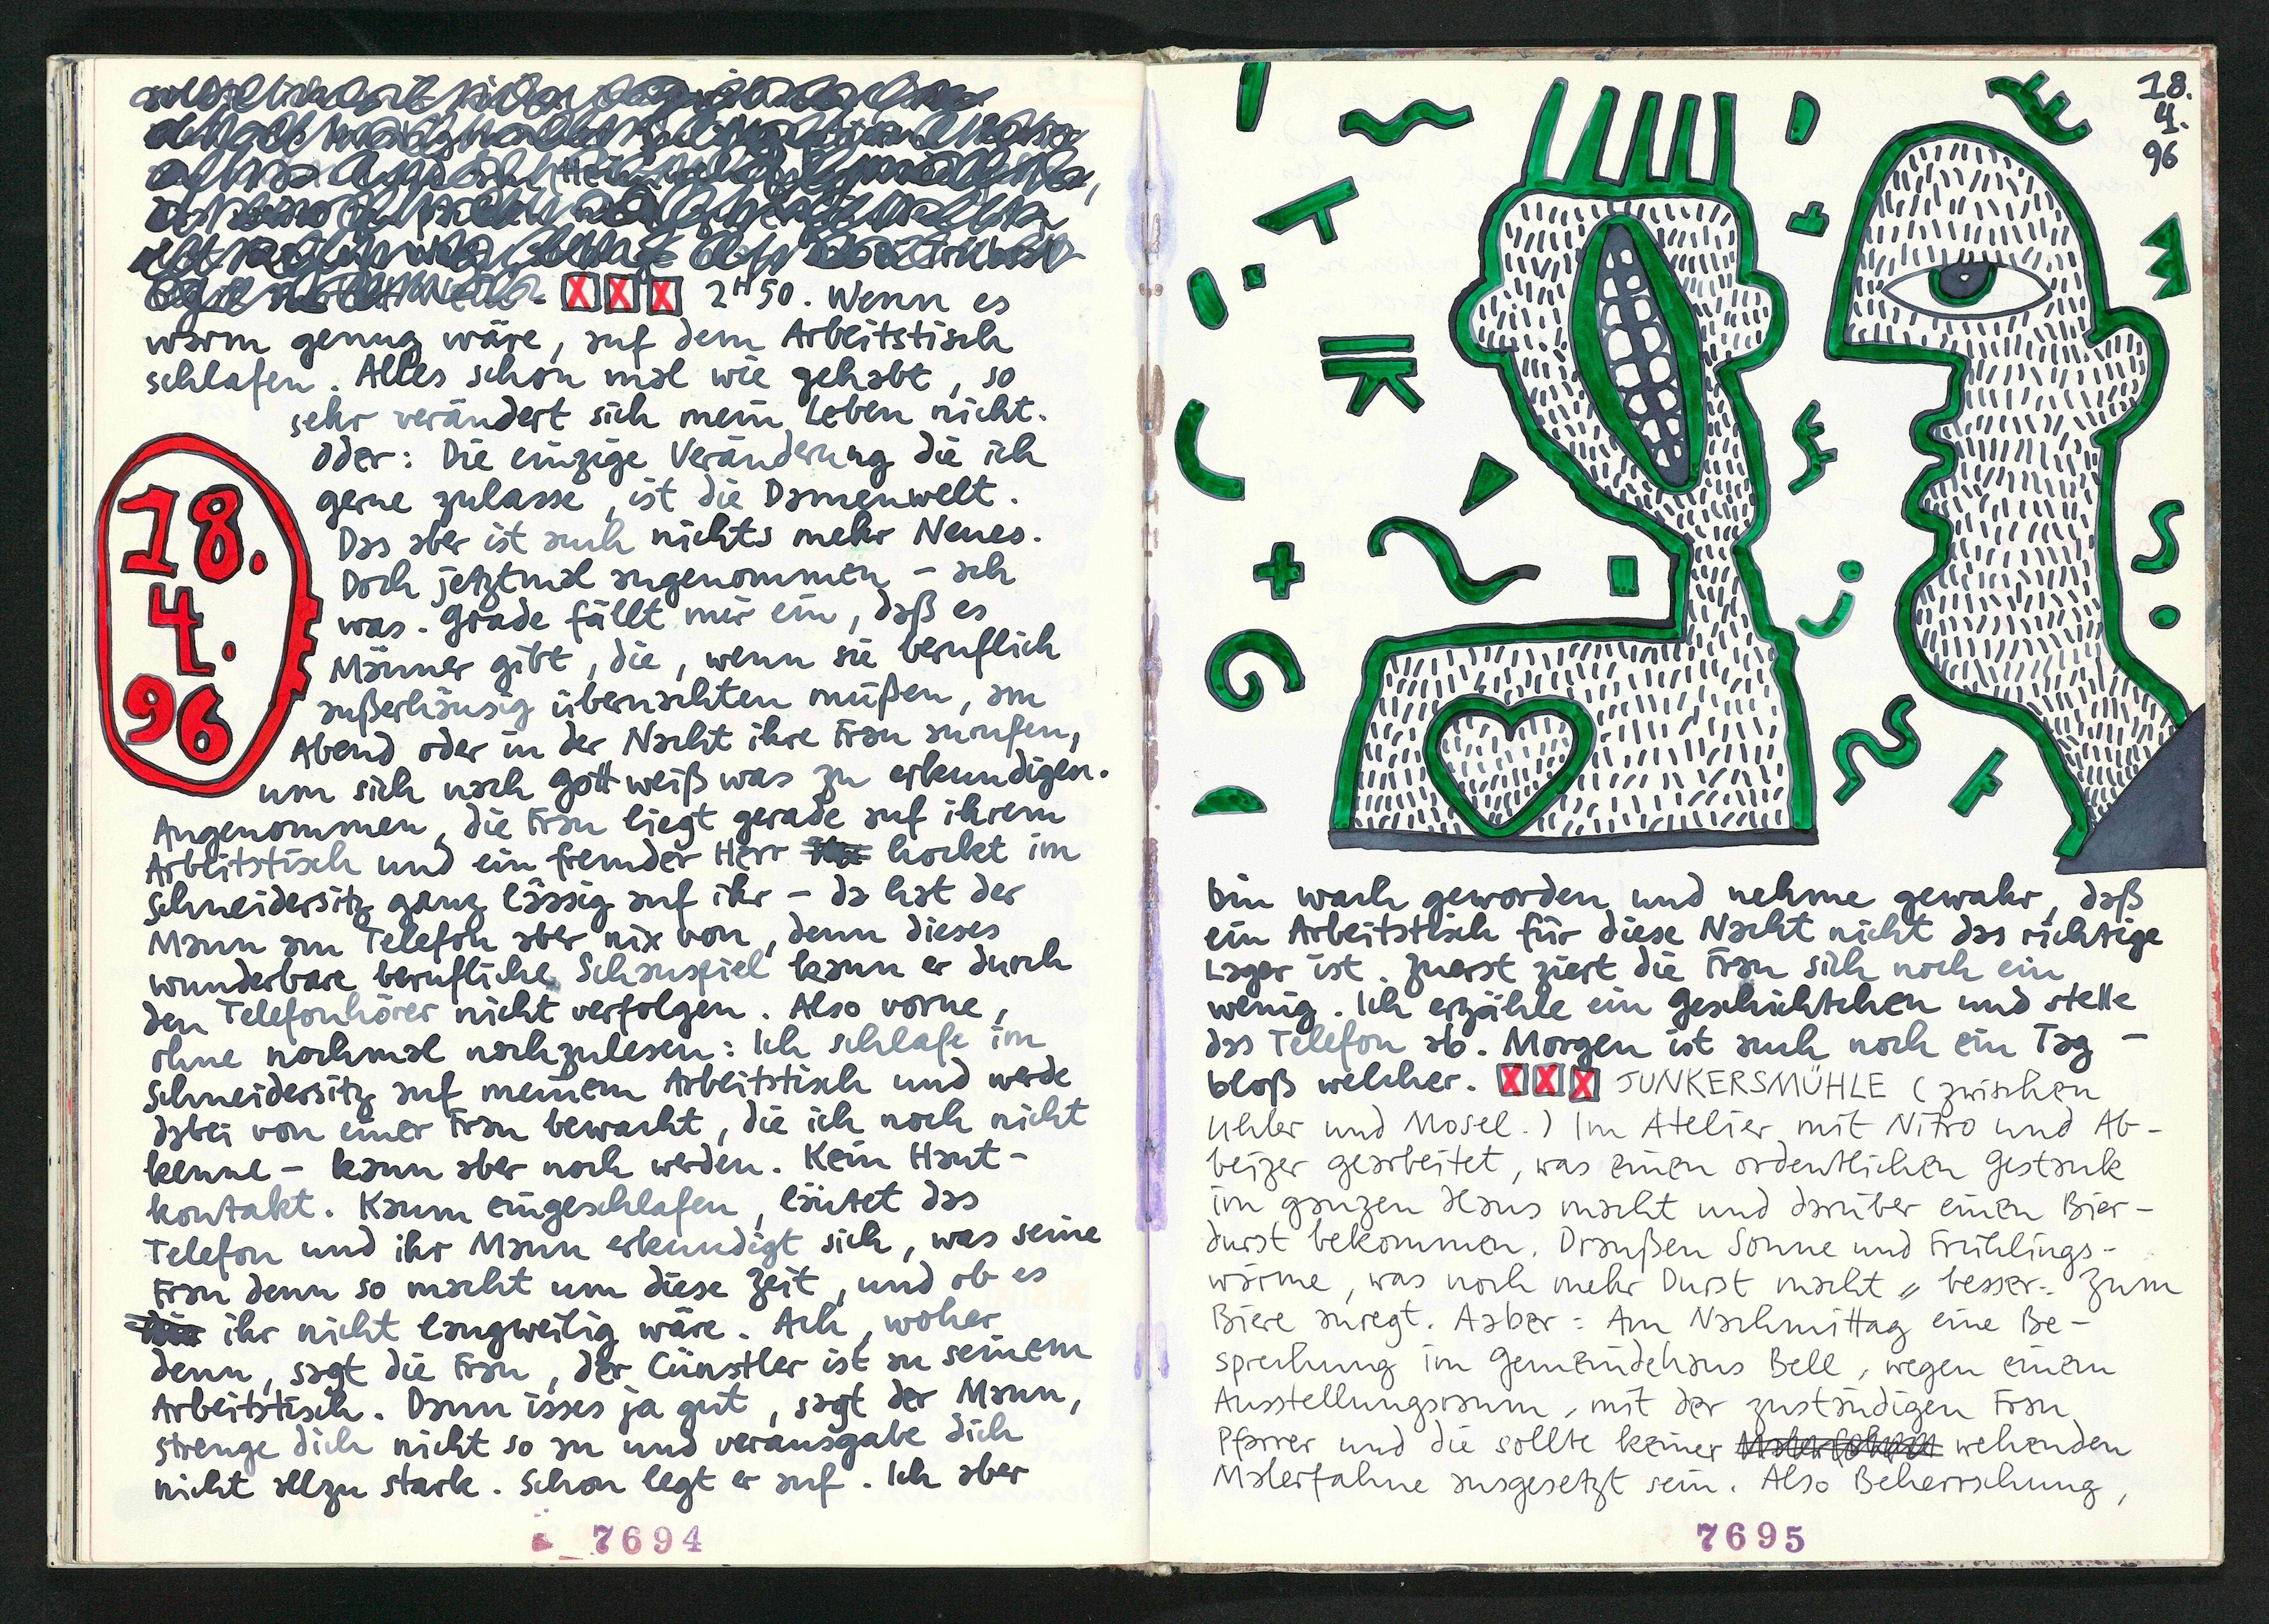 2H50. Wenn es
warm genug wäre, auf dem Arbeitstisch
schlafen. Alles schon mal wie gehabt, so
sehr verändert sich mein Leben nicht.
Oder: Die einzige Veränderung die ich
gerne zulasse, ist die Damenwelt.
Das aber ist auch nichts mehr Neues.
Doch jetztmal angenommen – ach
was. Grade fällt mir ein, daß es
Männer gibt, die, wenn sie beruflich
außerhäusig übernachten müßen, am
Abend oder in der Nacht ihre Frau anrufen,
um sich nach Gott weiß was zu erkundigen.
18.
4.
96
Angenommen, die Frau liegt gerade auf ihrem
Arbeitstisch und ein fremder Herr hockt im
Schneidersitz ganz lässig auf ihr – da hat der
Mann am Telefon aber nix von, denn dieses
wunderbare berufliche Schauspiel kann er durch
den Telefonhörer nicht verfolgen. Also vorne,
ohne nochmal nachzulesen: Ich schlafe im
Schneidersitz auf meinem Arbeitstisch und werde
dabei von einer Frau bewacht, die ich noch nicht
kenne – kann aber noch werden. Kein Haut-
kontakt. Kaum eingeschlafen, läutet das
Telefon und ihr Mann erkundigt sich, was seine
Frau denn so macht um diese Zeit, und ob es
ihr nicht langweilig wäre. Ach, woher
denn, sagt die Frau, der Cünstler ist an seinem
Arbeitstisch. Dann isses ja gut, sagt der Mann,
strenge dich nicht so an und verausgabe dich
nicht allzu stark. Schon legt er auf. Ich aber
7694
18.
4.
96
bin wach geworden und nehme gewahr, daß
ein Arbeitstisch für diese Nacht nicht das richtige
Lager ist. Zuerst ziert die Frau sich noch ein
wenig. Ich erzähle ein Geschichtchen und stelle
das Telefon ab. Morgen ist auch noch ein Tag –
bloß welcher. XXX JUNKERSMÜHLE (zwischen
Uhler und Mosel.) Im Atelier mit Nitro und Ab-
beizer gearbeitet, was einen ordentlichen Gestank
im ganzen Haus macht und darüber einen Bier-
durst bekommen. Draußen Sonne und Frühlings-
wärme, was noch mehr Durst macht, besser: zum
Biere anregt. Aaber: Am Nachmittag eine Be-
sprechung im Gemeindehaus Bell, wegen einem
Ausstellungsraum, mit der zuständigen Frau
Pfarrer und die sollte keiner wehenden
Malerfahne ausgesetzt sein. Also Beherrschung,
7695